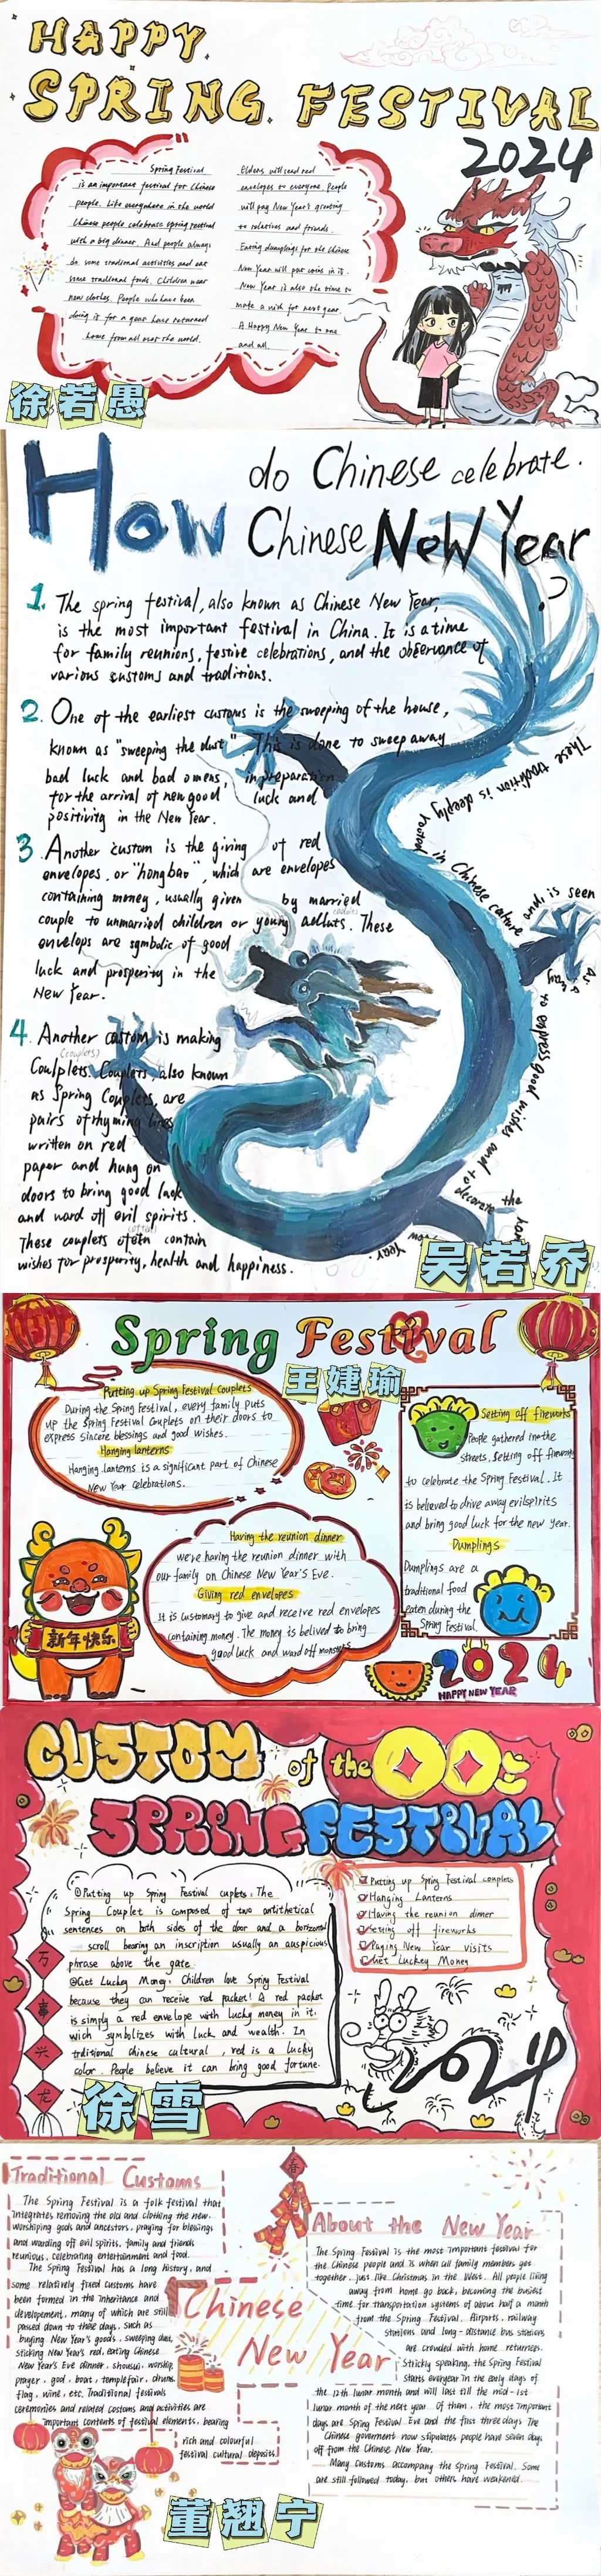 HAPPY
SPRING FESTIVAL
2024
Spring Festival
is an important festival for Chinese
people. Like everywhere in the world
Chinese people celebrate spring festival
with a big dinner. And people always
do some tradional activities and eat
some tradional foods. Children wear
new clothes. People who have been
doing is for a year have returned
home from all over the world.
Elders will send red
envelopes to everyone. People
will pay New Year's greeting
to relatives and friends.
Eating dumplings for the Chinese
New Year will put coins in it.
New Year is also the time to
make a wish for next year.
A Happy New Year to one
and all.
徐若愚
How do Chinese celebrate.
Chinese New Year
?
1. The spring festival, also known as Chinese New Year,
is the most important festival in China. It is a time
for family reunions, festive celebrations, and the observance of
various customs and traditions.
2. One of the earliest customs is the sweeping of the house,
known as "sweeping the dust". This is done to sweep away
bad luck and bad omens, in preparation
for the arrival of new good luck and
positivity in the New Year.
3. Another custom is the giving of red
envelopes, or "hongbao", which are envelopes
containing money, usually given by married
couple to unmarried children or young adluts. These
envelops are symbolic of good
luck and prosperity in the
New Year.
4. Another custom is making
(couplets)
Coulplets. Couplets, also known
as Spring Couplets, are
pairs of rhyming lines
written on red
paper and hung on
doors to bring good luck
and ward off evil spirits.
These couplets often contain
wishes for prosperity, health and happiness.
These tradition is deeply rooted in Chinese culture and is seen
as a way to express good wishes and to decorate the
Year.
吴若乔
Spring Festival
王婕瑜
Putting up Spring Festival Couplets
During the Spring Festival, every family puts
up the Spring Festival Couplets on their doors to
express sincere blessings and good wishes.
Hanging lanterns
Hanging lanterns is a significant part of Chinese
New Year Celebrations.
Setting off fireworks
People gathered in the
streets. Setting off fireworks
to celebrate the Spring Festival. It
is believed to drive away evil spirits
and bring good luck for the new year.
Dumplings
Dumplings are a
traditional food
eaten during the
Spring Festival.
Having the reunion dinner
we're having the reunion dinner with
our family on Chinese New Year's Eve.
Giving red envelopes
It is customary to give and receive red envelopes
containing money. The money is belived to bring
good luck and ward off monsters
新年快乐
2024
HAPPY NEW YEAR
CUSTOM of the
SPRING FESTIVAL
①Putting up Spring Festival cuplets: The
Spring Couplet is composed of two antithetical
sentences on both sides of the door and a horizontal
scroll bearing an inscription usually an auspicious
phrase above the gate.
②Get Luckey Money: Children love Spring Festival
because they can receive red packet! A red packet
is simply a red envelope with lucky money in it.
wich symbolizes with luck and wealth. In
trditional chinese cultural, red is a lucky
color. People believe it can bring good fortune.
Putting up Spring Festival couplets
Hanging Lanterns
Having the reunion dinner
Setting off fireworks
Paying New Year visits
Get Luckey Money
万事兴龙
2024
徐雪
Traditional Customs
The Spring Festival is a folk festival that
integrates removing the old and clothing the new.
worshiping gods and ancestors, praying for blessings
and warding off evil spirits, family and friends
reunious, celebrating entertainment and food.
The Spring Festival has a long history, and
some relatively fixed customs have
been formed in the inheritance and
development, many of which are still
passed down to these days, such as
buying New Year's goods, sweeping dust,
sticking New Year's red, eating Chinese
New Year's Eve dinner, shousui, worship,
prayer, god, boat, temple fair, drums,
flag, wine, etc. Traditional festivals
ceremonies and related costoms and activities are
important contents of festival elements, bearing
rich and colourful
festival cultural deposits
Chinese
New Year
春
About the New Year
The Spring Festival is the most important festival for
the Chinese people and is when all family members get
together, just like Christmas in the West. All people living
away from home go back, becoming the busiest
time for transportation systems of about half a month
from the Spring Festival. Airports, railway
stations and long-distance bus stations
are crowded with home returnees.
Strickly speaking, the Spring Festival
starts everyear in the early days of
the 12th lunar month and will last till the mid-1st
lunar month of the next year. Of them, the most important
days are Spring Festival Eve and the first three days. The
Chinese goverment now stipulates people have seven days
off from the Chinese New Year.
Many Customs accompany the Spring Festival. Some
are still followed today, but others have weakened.
董翘宁